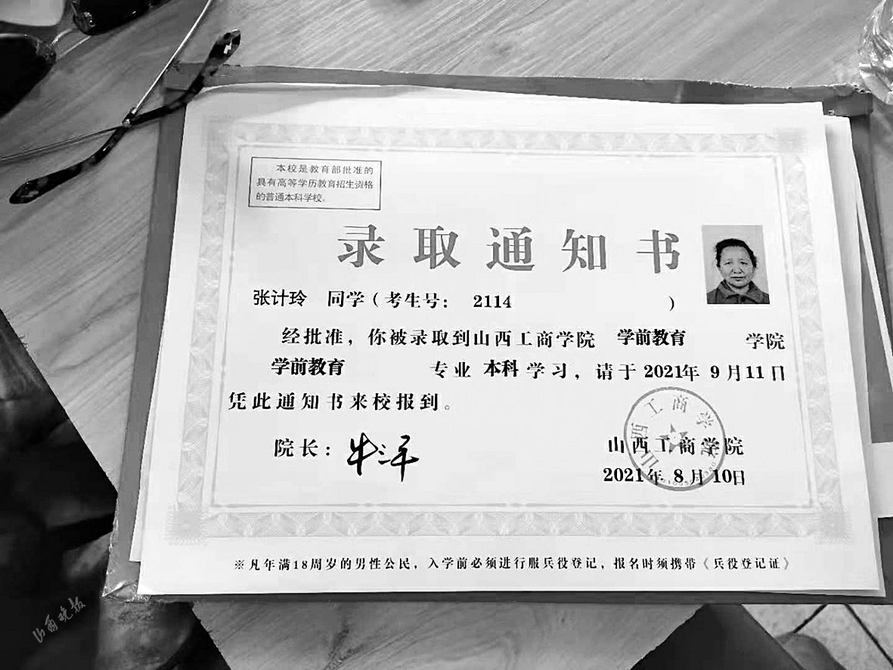 本校是教育部批准的
具有高等学历教育招生资格
的普通本科学校。
录取通知书
张计玲 同学（考生号： 2114 ）
经批准，你被录取到山西工商学院 学前教育 学院
学前教育 专业 本科 学习，请于 2021年 9 月 11 日
凭此通知书来校报到。
院长：牛三平
山西工商学院
2021年 8 月 10日
山西工商学院
※凡年满18周岁的男性公民，入学前必须进行服兵役登记，报名时须携带《兵役登记证》
山西晚报